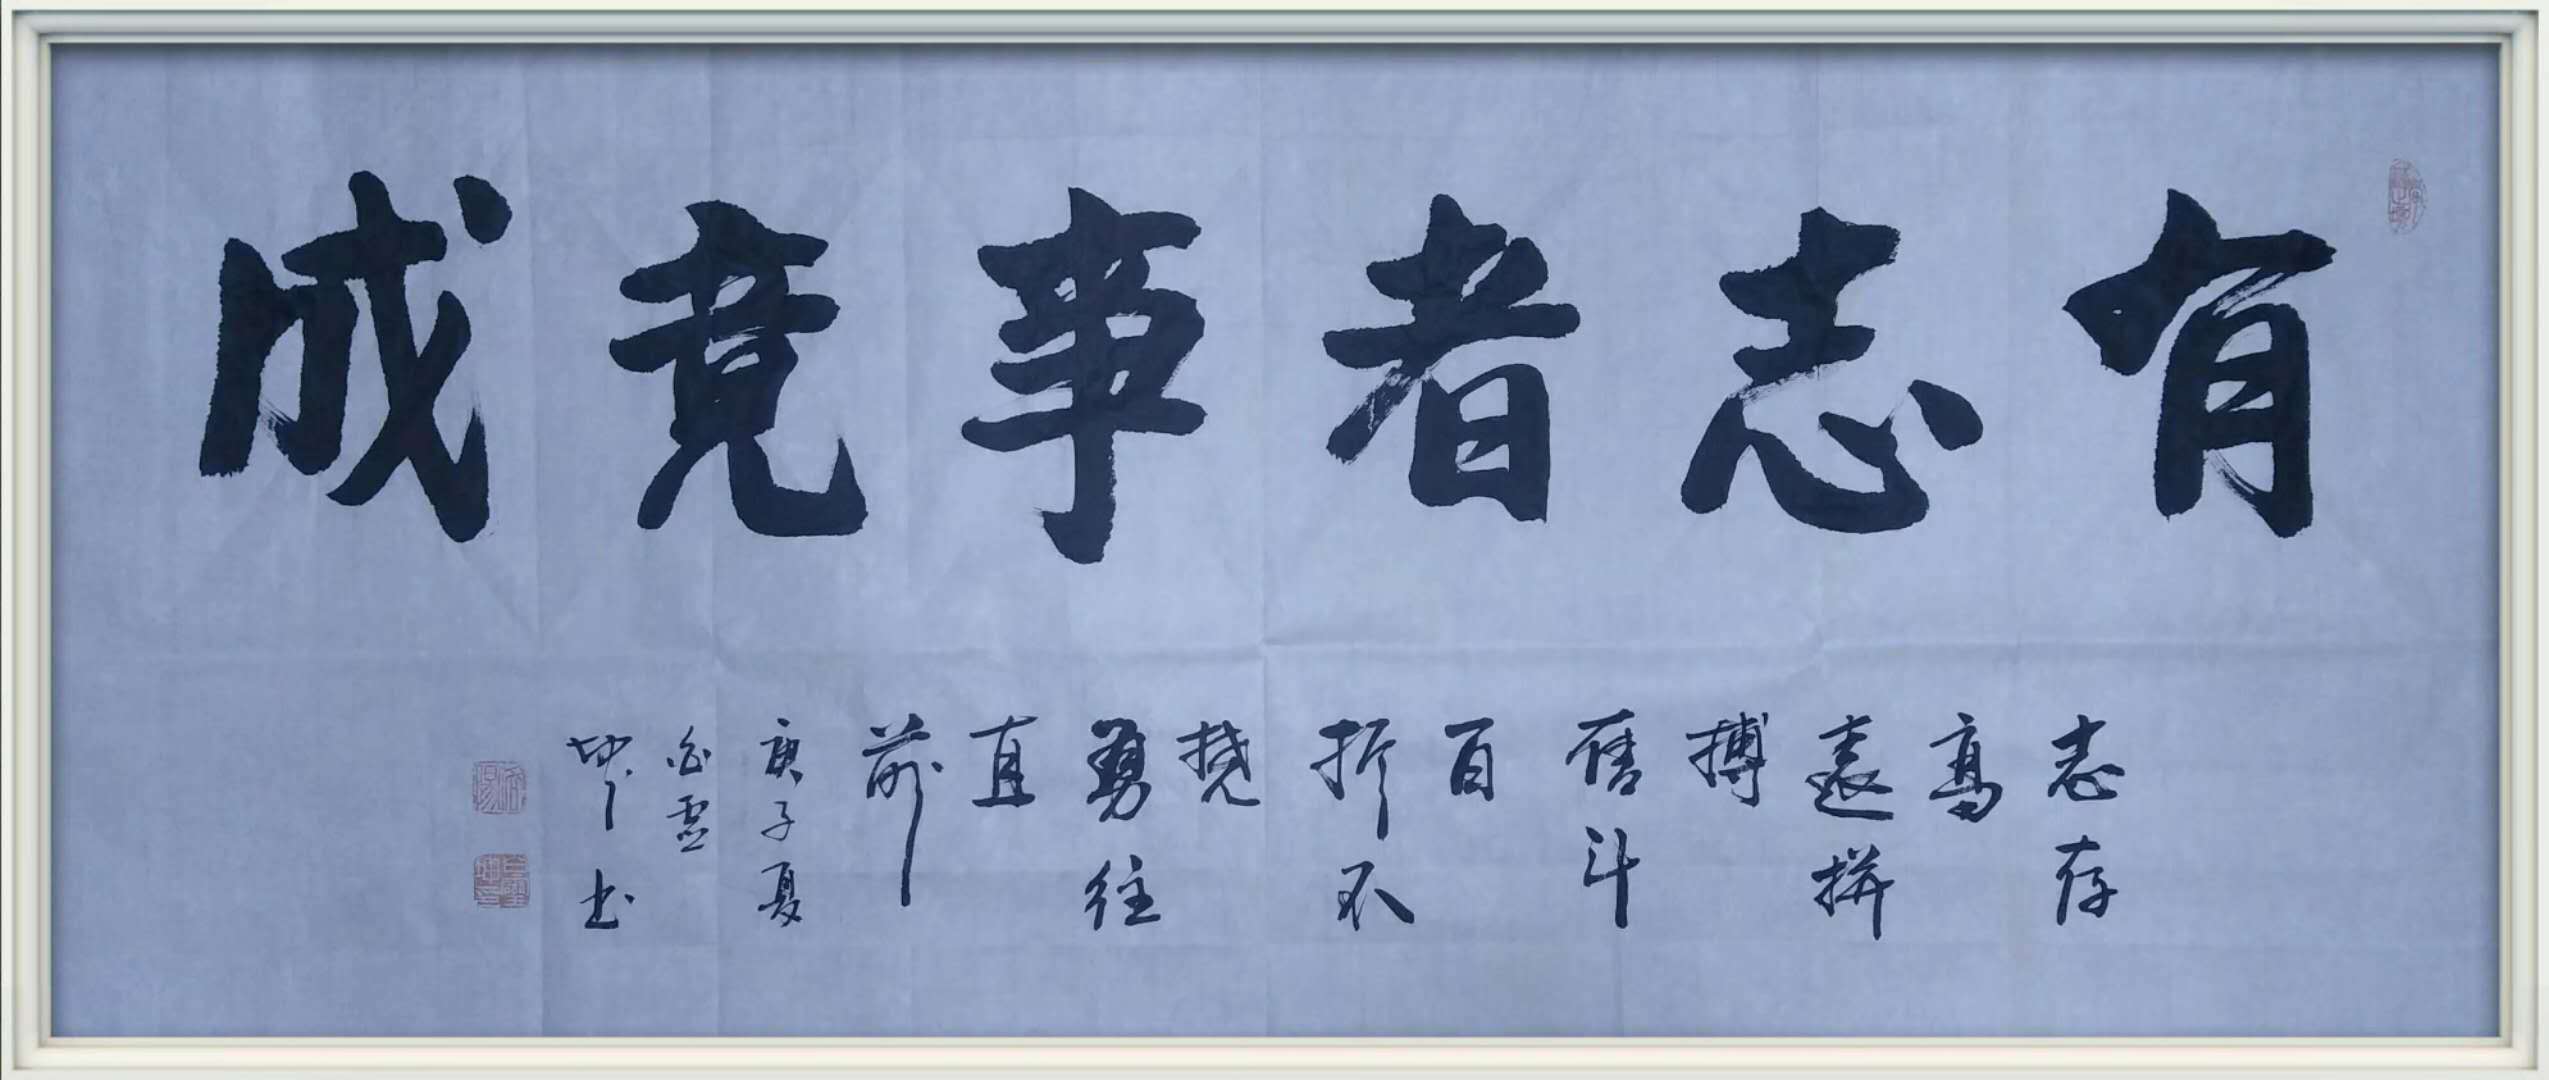 有志者事竟成
志存
高
遠拼
搏
奮斗
百
折不
挠
勇往
直
前
庚子夏
坤书